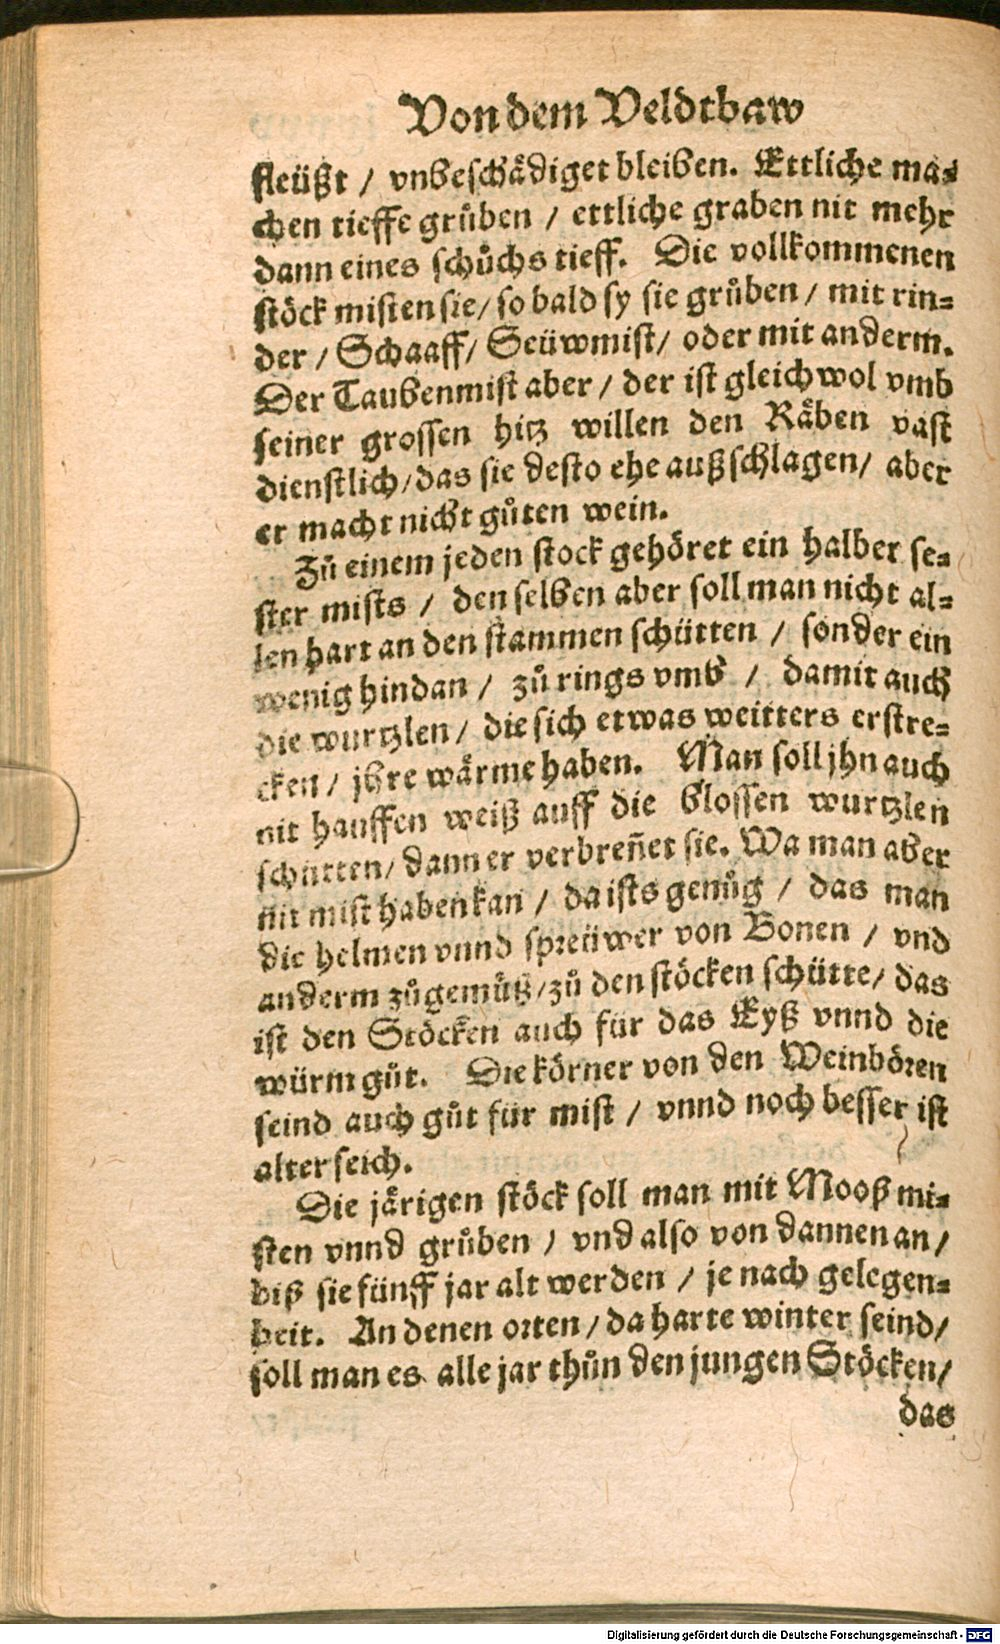 Von dem Veldtbaw
fleüßt / vnbeschädiget bleiben. Ettliche ma-
chen tieffe grůben / ettliche graben nit mehr
dann eines schůchs tieff. Die vollkommenen
stöck misten sie / so bald sy sie grůben / mit rin-
der / Schaaff / Seüwmist / oder mit anderm.
Der Taubenmist aber / der ist gleichwol vmb
seiner grossen hitz willen den Räben vast
dienstlich / das sie desto ehe außschlagen / aber
er macht nicht gůten wein.
Zů einem jeden stock gehöret ein halber se-
ster mists / den selben aber soll man nicht al-
len hart an den stammen schütten / sonder ein
wenig hindan / zů rings vmb / damit auch
die wurtzlen / die sich etwas weitters erstre-
cken / jhre wärme haben. Man soll jhn auch
nit hauffen weiß auff die blossen wurtzlen
schütten / dann er verbreñet sie. Wa man aber
nit mist haben kan / da ists genůg / das man
die helmen vnnd spreüwer von Bonen / vnd
anderm zůgemůß / zů den stöcken schütte / das
ist den Stöcken auch für das Eyß vnnd die
würm gůt. Die körner von den Weinbören
seind auch gůt für mist / vnnd noch besser ist
alter seich.
Die järigen stöck soll man mit Mooß mi-
sten vnnd grůben / vnd also von dannen an /
biß sie fünff jar alt werden / je nach gelegen-
heit. An denen orten / da harte winter seind /
soll man es alle jar thůn den jungen Stöcken /
das
Digitalisierung gefördert durch die Deutsche Forschungsgemeinschaft - DFG